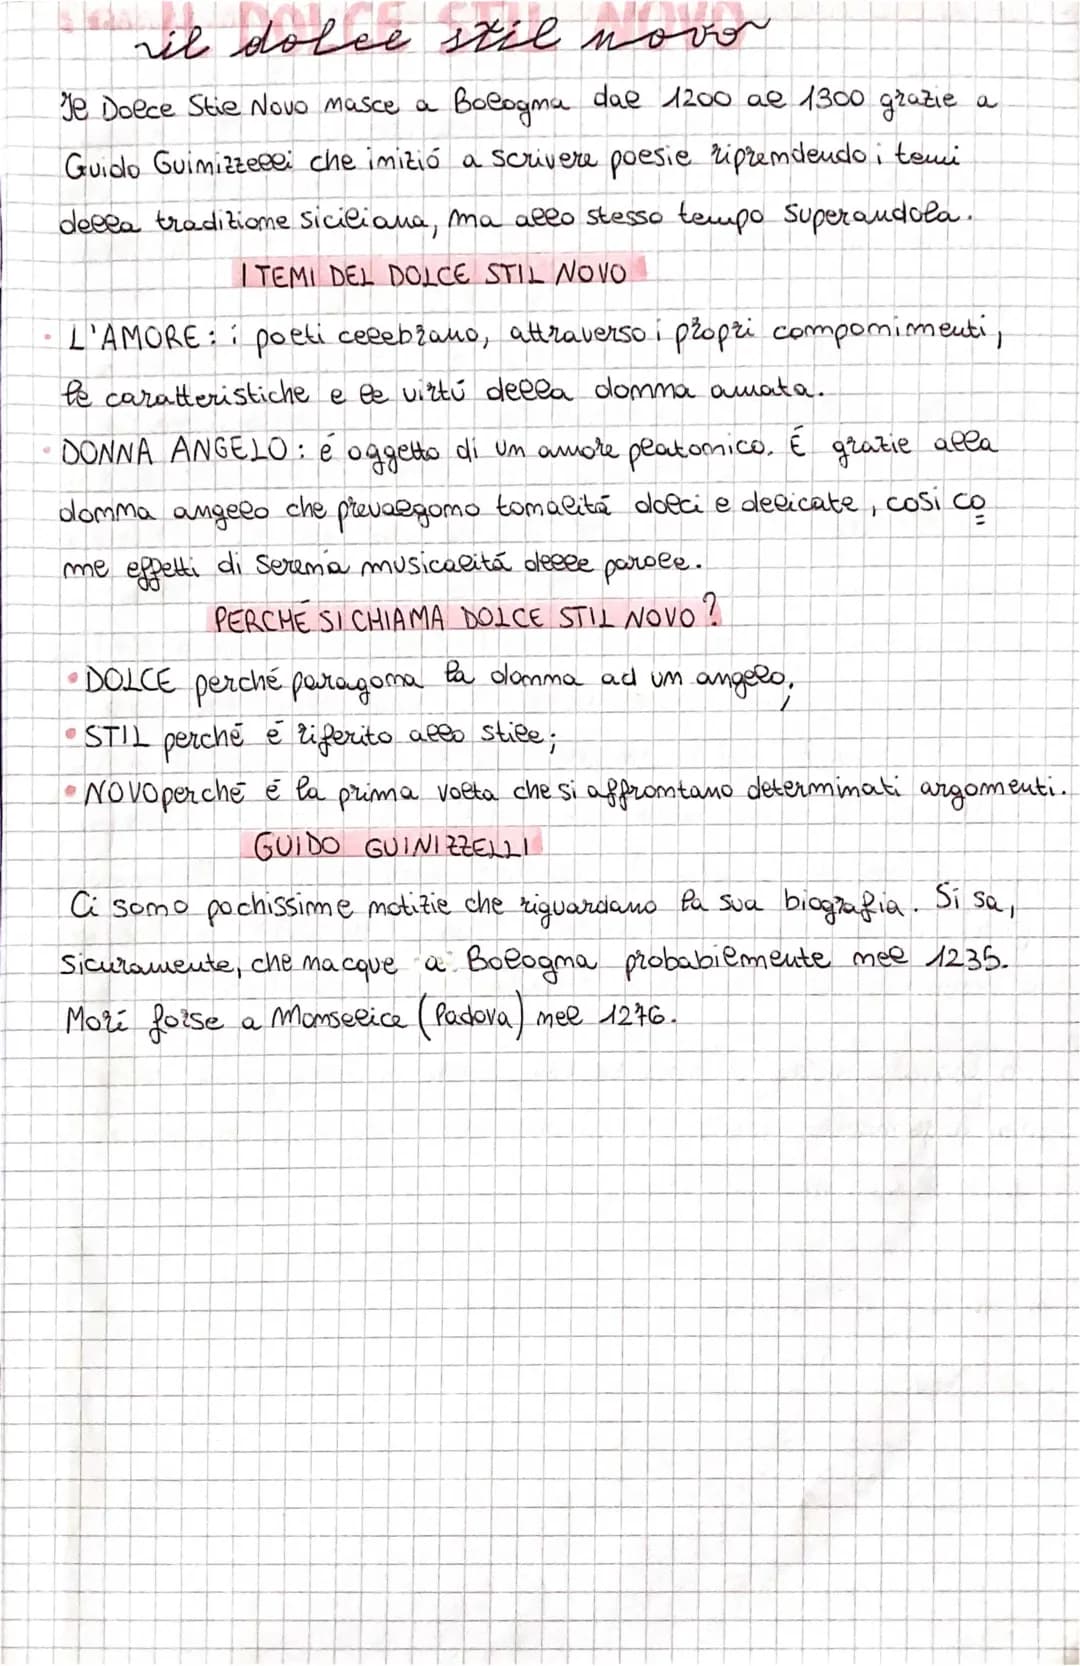 il dolce stil novo
Il Dolce Stil Novo nasce a Bologna dal 1200 al 1300 grazie a
Guido Guinizzelli che iniziò a scrivere poesie riprendendo i temi
della tradizione siciliana, ma allo stesso tempo superandola.
I TEMI DEL DOLCE STIL NOVO
• L'AMORE: i poeti celebrano, attraverso i propri componimenti,
le caratteristiche e le virtù della donna amata.
• DONNA ANGELO: è oggetto di un amore platonico. È grazie alla
donna angelo che prevalgono tonalità dolci e delicate, così co
me effetti di serena musicalità delle parole.
PERCHÉ SI CHIAMA DOLCE STIL NOVO?
• DOLCE perché paragona la donna ad un angelo;
• STIL perché è riferito allo stile;
• NOVO perché è la prima volta che si affrontano determinati argomenti.
GUIDO GUINIZZELLI
Ci sono pochissime notizie che riguardano la sua biografia. Si sa,
sicuramente, che nacque a Bologna probabilmente nel 1235.
Morì forse a Monselice (Padova) nel 1276.